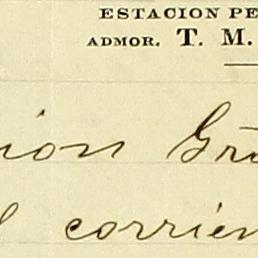 ESTACION PE
ADMOR. T. M.
ion Gra
l corrien